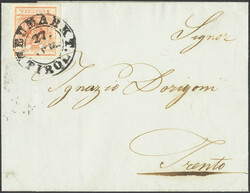 NEUMARKT.
27
TIROL
Signor
Ignazio Dorigoni
Trento